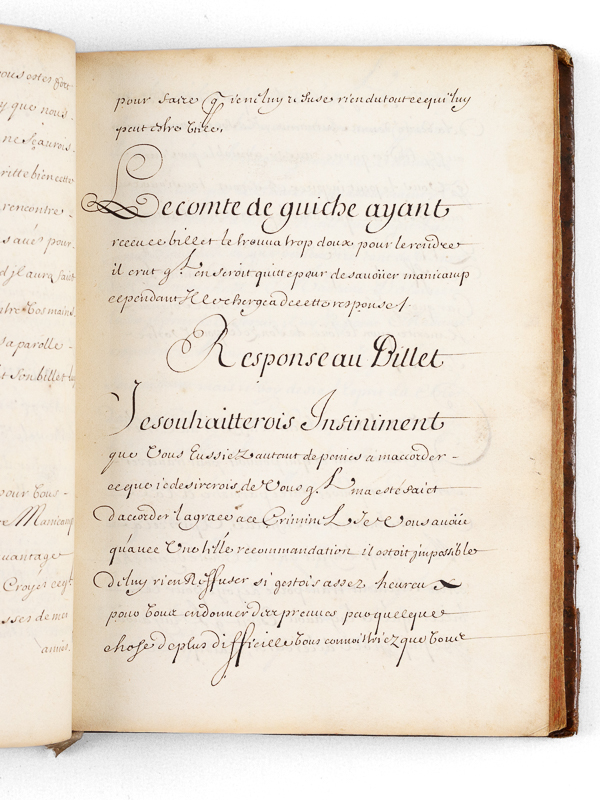 ous estes fort
y que nous
ne scaurois
ritte bien cette
rencontre
s avés pour
d jl aura fait
ntre vos mains
sa parolle
t son billet luy
pour vous
e Manicamp
avantage
Croyés ce q
sses de mes
amis.
pour faire q ie ne luy refuse rien du tout ce qu'il luy
peut estre utile
Le comte de guiche ayant
receu ce billet le trouva trop doux pour le rendre
il crut q en seroit quitte pour desavoüer manicamp
cependant Il le chergea de cette response /
Response au Billet
Je souhaitterois Infiniment
que Vous Eussiez autant de peines a maccorder
ce que ie desirerois de Vous q ma esté faict
daccorder la grace a ce Criminel Je Vous avoüe
qu'avec Une telle recommandation il estoit jmpossible
de luy rien Reffuser si gestois assez heureux
pour vous en donner des preuves par quelque
chose de plus difficille vous connoistriez que vous